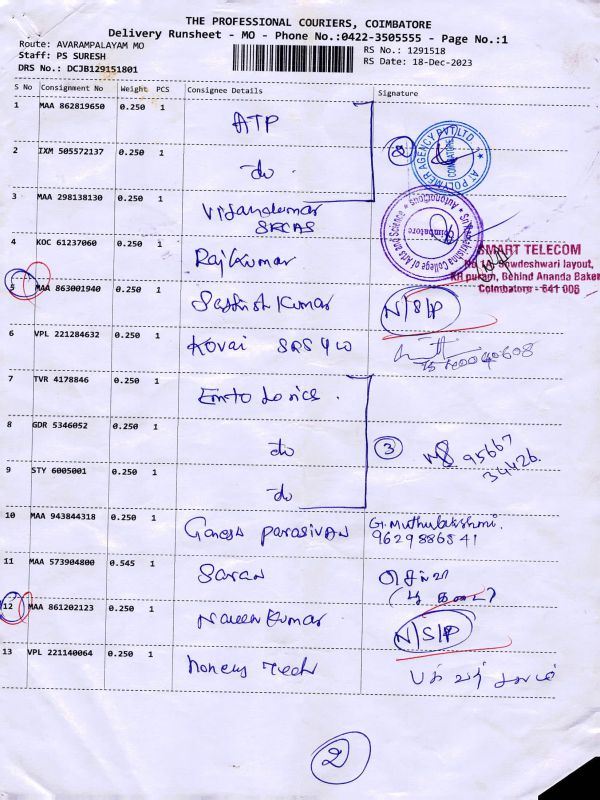 THE PROFESSIONAL COURIERS, COIMBATORE
Delivery Runsheet - MO - Phone No.:0422-3505555 - Page No.:1
Route: AVARAMPALAYAM MO
RS No.: 1291518
Staff: PS SURESH
RS Date: 18-Dec-2023
DRS No.: DCJB129151801
S No Consignment No Weight PCS Consignee Details Signature
1 MAA 862819650 0.250 1 ATP
2 IXM 505572137 0.250 1 do 2
AI POLYMER AGENCY PVT LTD COIMBATORE
3 MAA 298138130 0.250 1 SRCAS
College of Arts and Science Coimbatore
4 KOC 61237060 0.250 1 Rajkumar
SMART TELECOM
KR puram, Behind Ananda Baker
Coimbatore - 641 006
5 MAA 863001940 0.250 1 Sathish Kumar N/S/P
6 VPL 221284632 0.250 1 Kovai
7 TVR 4178846 0.250 1
8 GDR 5346052 0.250 1 do 3 95667
34426
9 STY 6005001 0.250 1 do
10 MAA 943844318 0.250 1 Ganesh Parasivan G. Muthulakshmi.
9629886541
11 MAA 573904800 0.545 1 Saran
12 MAA 861202123 0.250 1 Naveen Kumar N/S/P
13 VPL 221140064 0.250 1 Tech
2